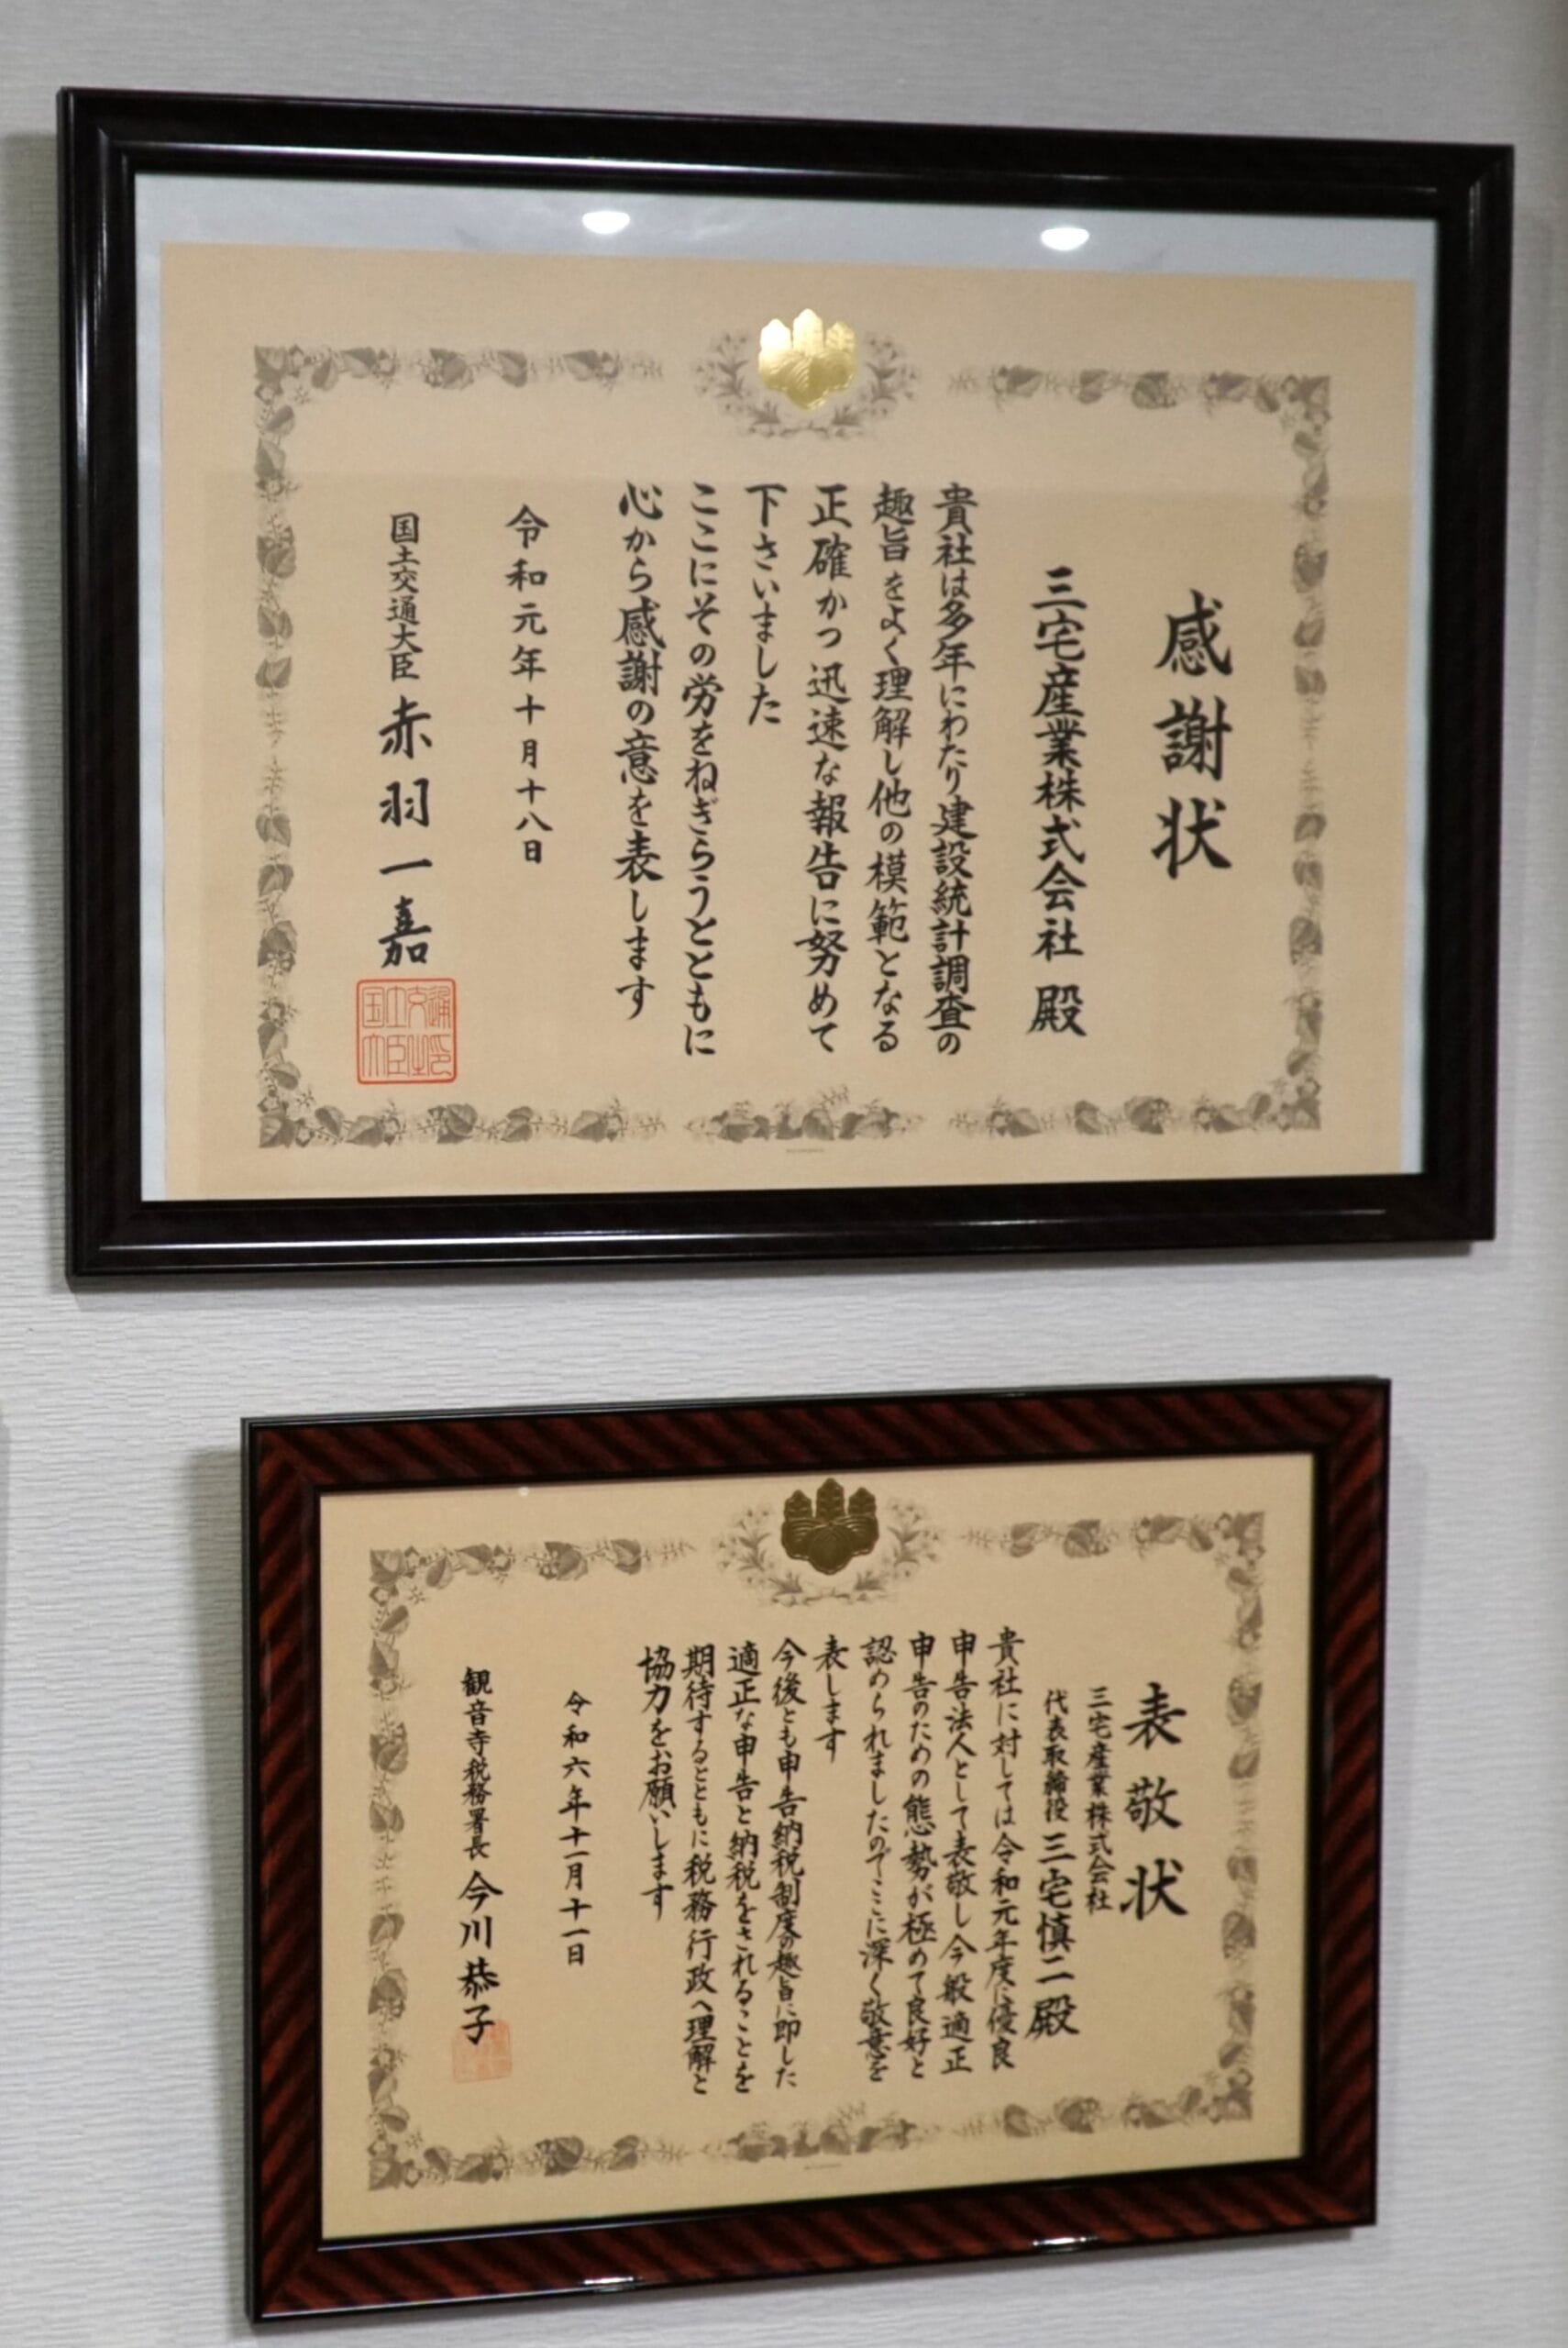 感謝状
三宅産業株式会社 殿
貴社は多年にわたり建設統計調査の
趣旨をよく理解し他の模範となる
正確かつ迅速な報告に努めて
下さいました
ここにその労をねぎらうとともに
心から感謝の意を表します
令和元年十月十八日
国土交通大臣 赤羽一嘉
国土交通
大臣之印
表敬状
三宅産業株式会社
代表取締役 三宅慎二殿
貴社に対しては令和元年度に優良
申告法人として表敬し今般適正
申告のための態勢が極めて良好と
認められましたのでここに深く敬意を
表します
今後とも申告納税制度の趣旨に即した
適正な申告と納税をされることを
期待するとともに税務行政へ理解と
協力をお願いします
令和六年十一月十一日
観音寺税務署長 今川恭子